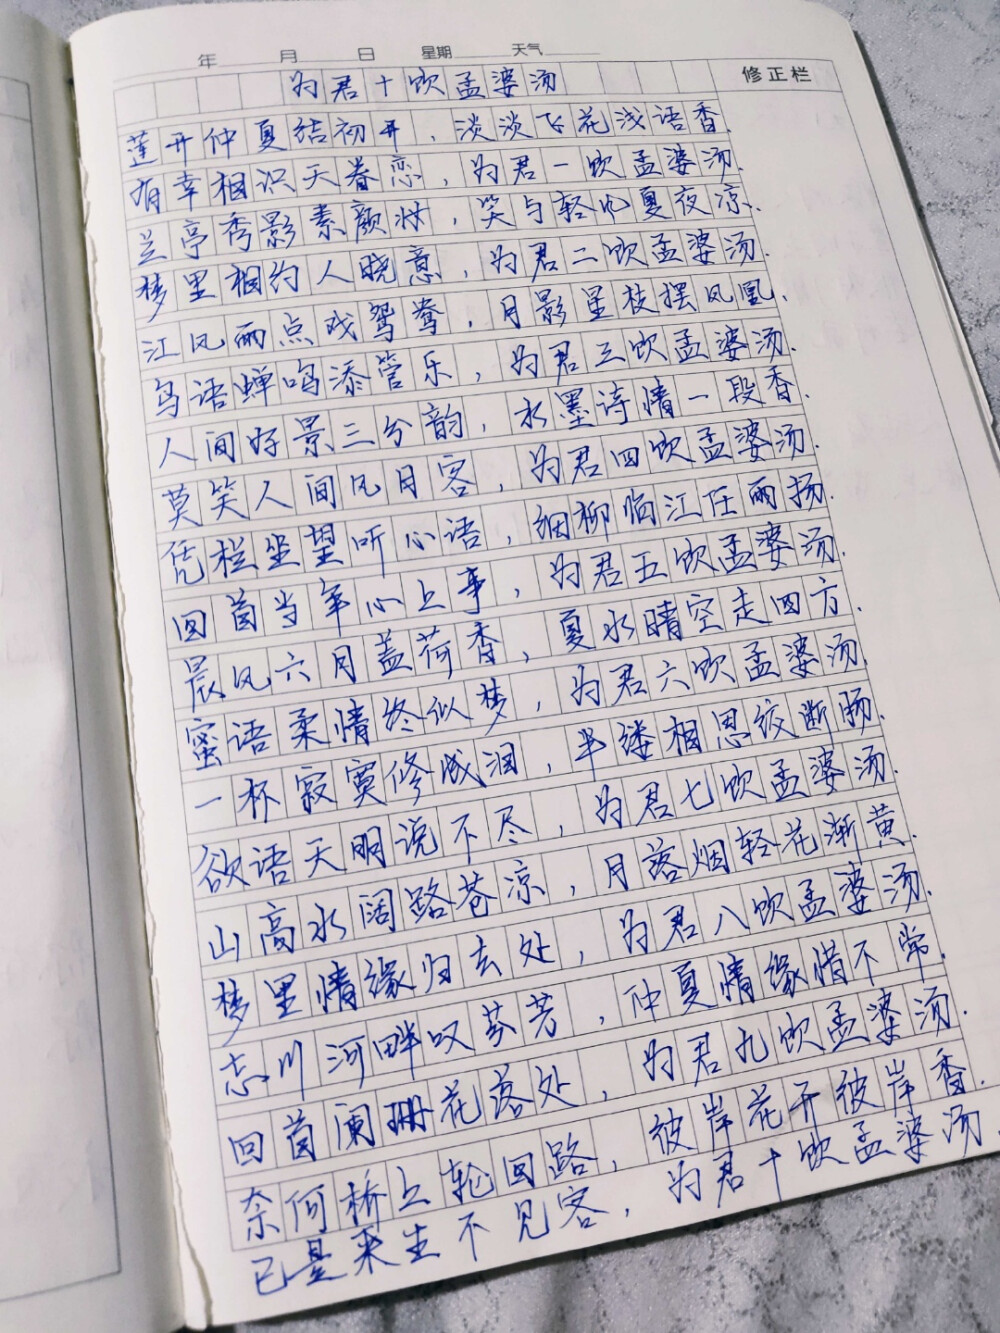 年 月 日 星期 天气
修正栏
为君十饮孟婆汤
莲开仲夏结初开，淡淡飞花浅语香.
有幸相识天眷恋，为君一饮孟婆汤.
兰亭秀影素颜妝，笑与轻风夏夜凉.
梦里相约人晓意，为君二饮孟婆汤.
江风雨点戏鸳鸯，月影星枝摆凤凰.
鸟语蝉鸣添管乐，为君三饮孟婆汤.
人间好景三分韵，水墨诗情一段香.
莫笑人间风月客，为君四饮孟婆汤.
凭栏坐望听心语，烟柳临江任雨扬.
回首当年心上事，为君五饮孟婆汤.
晨风六月盖荷香，夏水晴空走四方.
蜜语柔情终似梦，为君六饮孟婆汤.
一杯寂寞修成泪，半缕相思绞断肠.
欲语天明说不尽，为君七饮孟婆汤.
山高水阔路苍凉，月落烟轻花渐黄.
梦里情缘归去处，为君八饮孟婆汤.
忘川河畔叹芬芳，仲夏情缘惜不常.
回首阑珊花落处，为君九饮孟婆汤.
奈何桥上轮回路，彼岸花开彼岸香.
已是来生不见客，为君十饮孟婆汤.